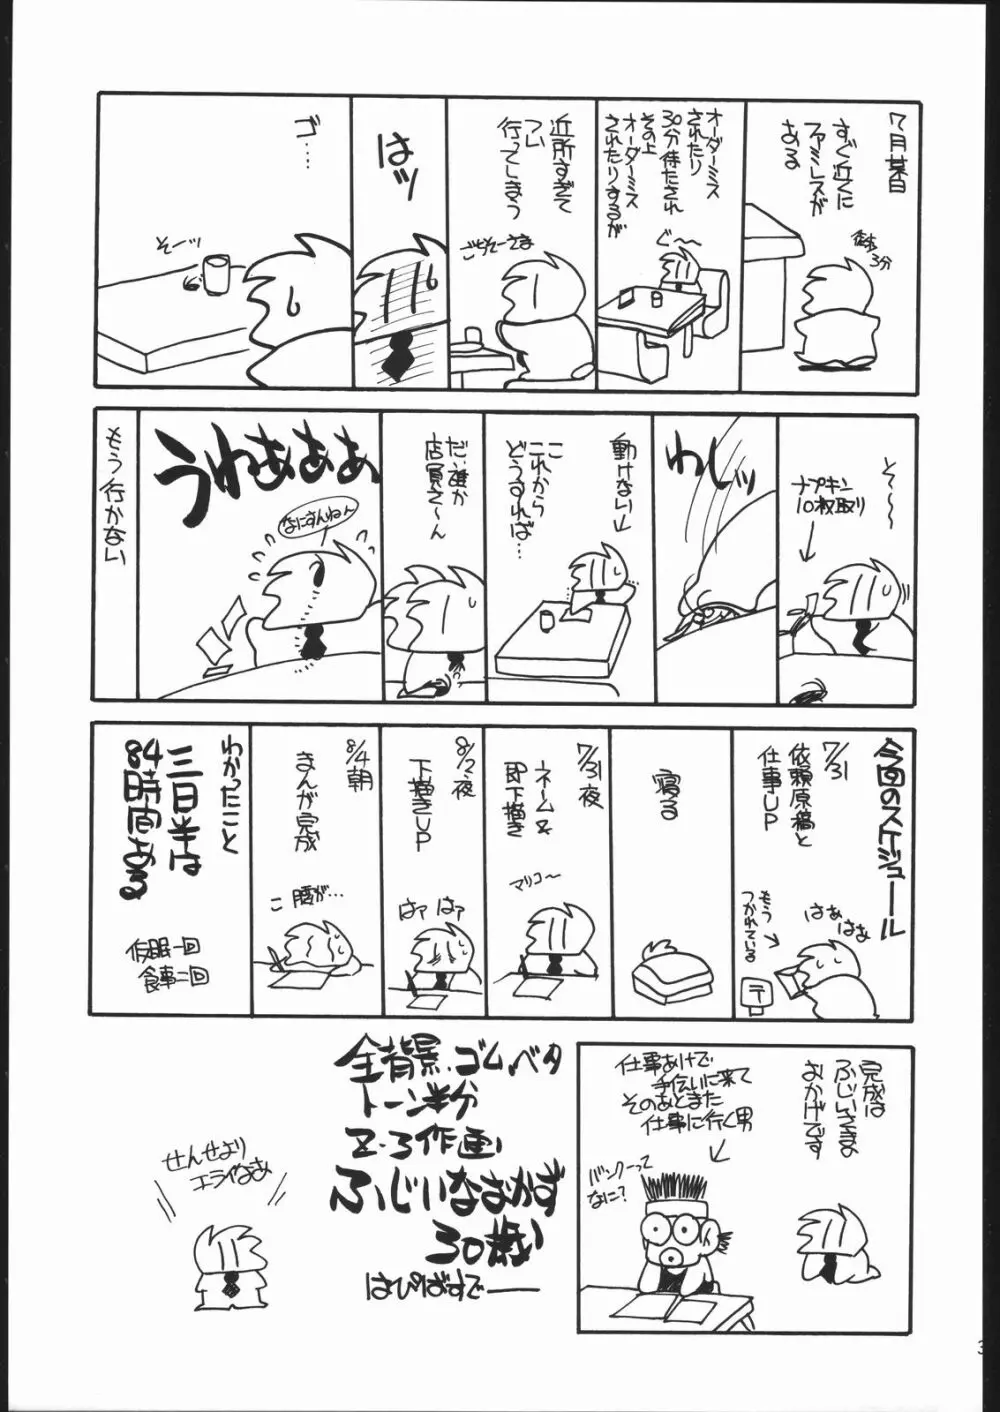 7月某日
すぐ近くに
ファミレスが
ある
徒歩
3分
オーダーミス
されたり
30分待たされ
その上
オーダーミス
されたりするが
ぐ〜
近所すぎて
つい
行ってしまう
ごちそーさま
はッ
ゴ……
そーッ
そ〜〜
ナプキン
10枚取り
わしッ
動けない
これから
どうすれば…
だ、誰か
店員さ〜ん
うわぁあぁぁ
なにすんねん
もう行かない
今回のスケジュール
7/31
依頼原稿と
仕事UP
はぁ
はぁ
もう
つかれている
〒
寝る
7/31夜
ネーム&
即下描き
マリコ〜
8/2、夜
下描きUP
はァ
はァ
8/4朝
まんが完成
こ
腰が…
わかったこと
三日半は
84時間ある
仮眠一回
食事二回
完成は
ふじいさま
おかげです
仕事あけで
手伝いに来て
そのあとまた
仕事に行く男
バンクーって
なに?
全背景、ゴム、ベタ
トーン半分
2・3作画
ふじいなおかず
30歳
はぴばすでー
せんせより
エライなぁ
3